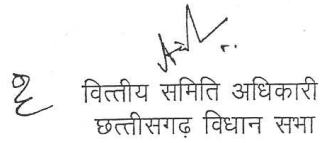 वित्तीय समिति अधिकारी
छत्तीसगढ़ विधान सभा